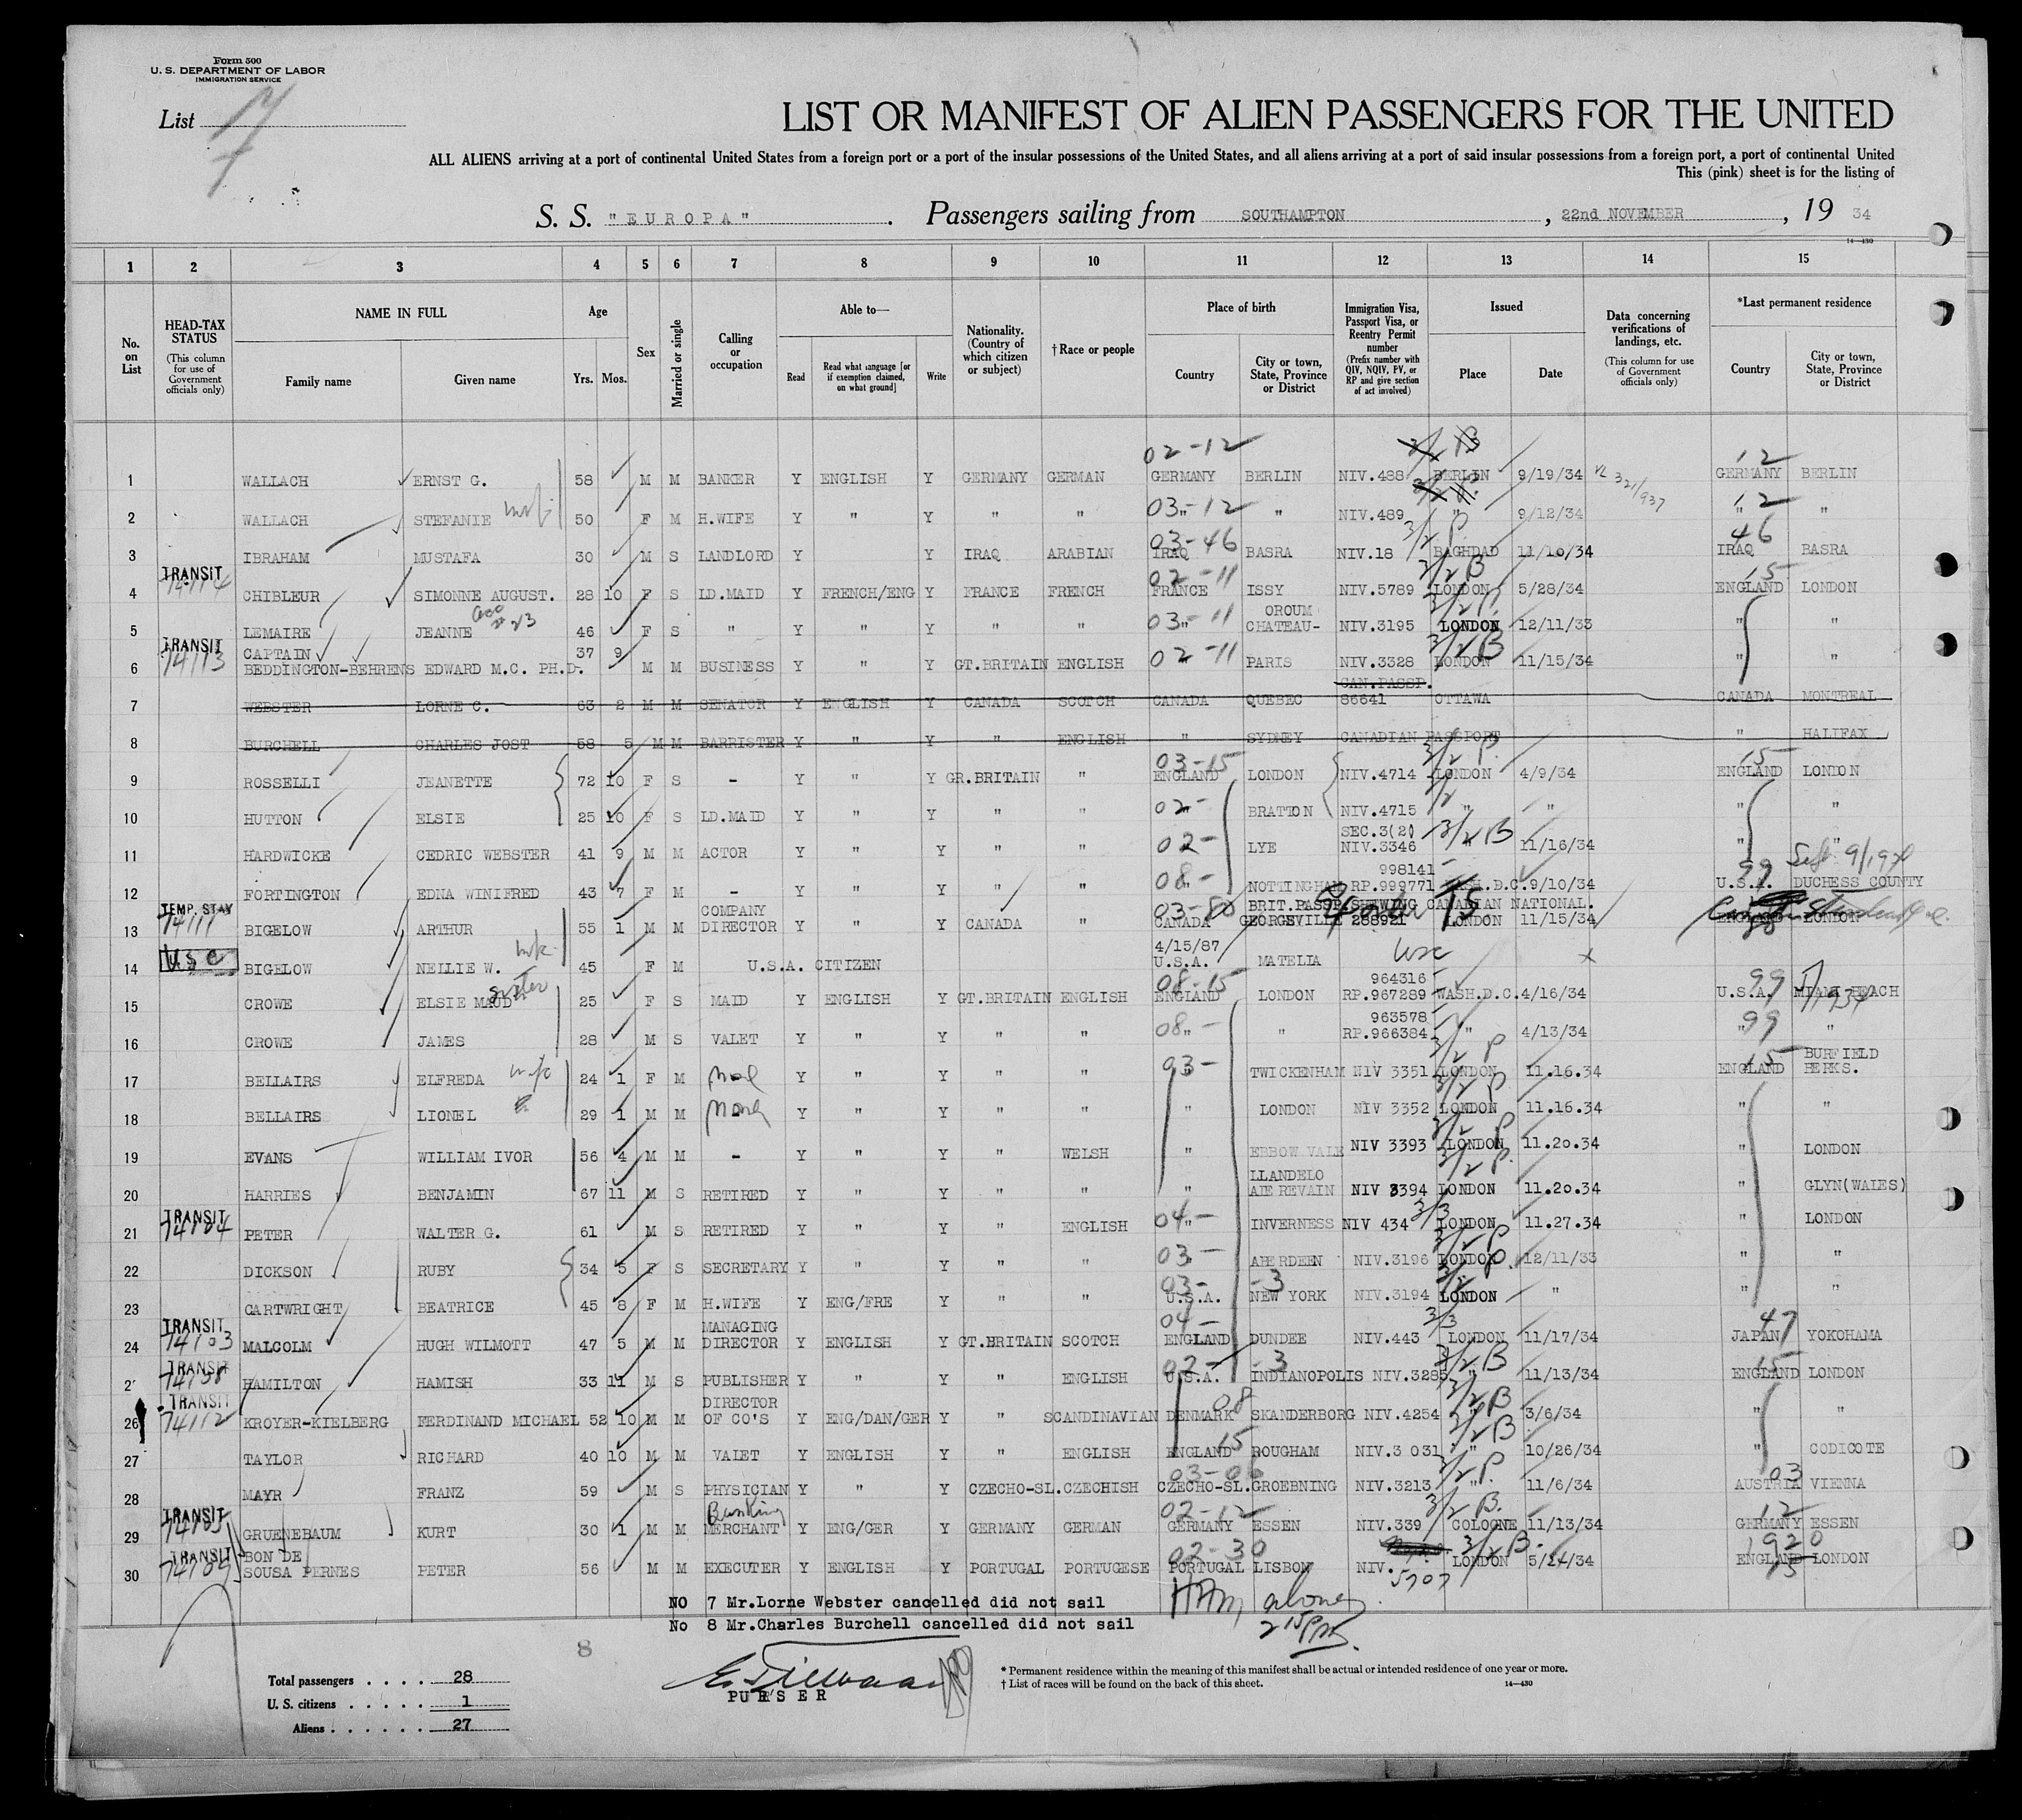 Form 500
U. S. DEPARTMENT OF LABOR
IMMIGRATION SERVICE
List
LIST OR MANIFEST OF ALIEN PASSENGERS FOR THE UNITED
ALL ALIENS arriving at a port of continental United States from a foreign port or a port of the insular possessions of the United States, and all aliens arriving at a port of said insular possessions from a foreign port, a port of continental United
This (pink) sheet is for the listing of
S. S. "EUROPA" . Passengers sailing from SOUTHAMPTON , 22nd NOVEMBER , 19 34
14—430
1 2 3 4 5 6 7 8 9 10 11 12 13 14 15
No. on List
HEAD-TAX STATUS (This column for use of Government officials only)
NAME IN FULL Family name Given name
Age Yrs. Mos.
Sex
Married or single
Calling or occupation
Able to— Read Read what language [or if exemption claimed, on what ground] Write
Nationality. (Country of which citizen or subject)
†Race or people
Place of birth Country City or town, State, Province or District
Immigration Visa, Passport Visa, or Reentry Permit number (Prefix number with QIV, NQIV, PV, or RP and give section of act involved)
Issued Place Date
Data concerning verifications of landings, etc. (This column for use of Government officials only)
*Last permanent residence Country City or town, State, Province or District
02-12 12
1 WALLACH ERNST G. 58 M M BANKER Y ENGLISH Y GERMANY GERMAN GERMANY BERLIN NIV.488 BERLIN 9/19/34 GERMANY BERLIN
2 WALLACH STEFANIE 50 F M H.WIFE Y " Y " " 03-12 " " NIV.489 " 9/12/34 12 " "
03-46 46
3 IBRAHAM MUSTAFA 30 M S LANDLORD Y Y IRAQ ARABIAN IRAQ BASRA NIV.18 BAGHDAD 11/10/34 IRAQ BASRA
TRANSIT 02-11 15
4 74114 CHIBLEUR SIMONNE AUGUST. 28 10 F S LD.MAID Y FRENCH/ENG Y FRANCE FRENCH FRANCE ISSY NIV.5789 LONDON 5/28/34 ENGLAND LONDON
OROUM
5 LEMAIRE JEANNE 46 F S " Y " Y " " 03-11 " CHATEAU- NIV.3195 LONDON 12/11/33 " "
TRANSIT CAPTAIN 37 9
6 74113 BEDDINGTON-BEHRENS EDWARD M.C. PH.D. M M BUSINESS Y " Y GT.BRITAIN ENGLISH 02-11 PARIS NIV.3328 LONDON 11/15/34 " "
CAN.PASSP.
7 WEBSTER LORNE C. 63 2 M M SENATOR Y ENGLISH Y CANADA SCOTCH CANADA QUEBEC 86641 OTTAWA CANADA MONTREAL
8 BURCHELL CHARLES JOST 58 5 M M BARRISTER Y " Y " ENGLISH " SYDNEY CANADIAN PASSPORT " HALIFAX
03-15 15
9 ROSSELLI JEANETTE 72 10 F S - Y " Y GR.BRITAIN " ENGLAND LONDON NIV.4714 LONDON 4/9/34 ENGLAND LONDON
10 HUTTON ELSIE 25 10 F S LD.MAID Y " Y " " 02- " BRATTON NIV.4715 " " " "
SEC.3(2)
11 HARDWICKE CEDRIC WEBSTER 41 9 M M ACTOR Y " Y " " 02- " LYE NIV.3346 " 11/16/34 " "
998141 99
12 FORTINGTON EDNA WINIFRED 43 7 F M - Y " Y " " 08- " NOTTINGHAM RP.999771 WASH.D.C. 9/10/34 U.S.A. DUCHESS COUNTY
TEMP. STAY COMPANY 03-80 BRIT.PASSP.SHEWING CANADIAN NATIONAL.
13 74111 BIGELOW ARTHUR 55 1 M M DIRECTOR Y " Y CANADA " CANADA GEORGEVILLE 288921 LONDON 11/15/34 ENGLAND LONDON
4/15/87 usc
14 USC BIGELOW NELLIE W. 45 F M U.S.A. CITIZEN U.S.A. MATELIA x
sister 08-15 964316 99
15 CROWE ELSIE MAUD 25 F S MAID Y ENGLISH Y GT.BRITAIN ENGLISH ENGLAND LONDON RP.967289 WASH.D.C. 4/16/34 U.S.A. MIAMI BEACH
963578
16 CROWE JAMES 28 M S VALET Y " Y " " 08- " " RP.966384 " 4/13/34 99 " "
15 BURFIELD
17 BELLAIRS ELFREDA 24 1 F M Y " Y " " 93- TWICKENHAM NIV 3351 LONDON 11.16.34 ENGLAND BERKS.
18 BELLAIRS LIONEL 29 1 M M None Y " Y " " " LONDON NIV 3352 LONDON 11.16.34 " "
19 EVANS WILLIAM IVOR 56 4 M M - Y " Y " WELSH " EBBOW VALE NIV 3393 LONDON 11.20.34 " LONDON
LLANDELO
20 HARRIES BENJAMIN 67 11 M S RETIRED Y " Y " " " AIE REVAIN NIV 3394 LONDON 11.20.34 " GLYN(WALES)
TRANSIT
21 74104 PETER WALTER G. 61 M S RETIRED Y " Y " ENGLISH 04- " INVERNESS NIV 434 LONDON 11.27.34 " LONDON
22 DICKSON RUBY 34 5 F S SECRETARY Y " Y " " 03- ABERDEEN NIV.3196 LONDON 12/11/33 " "
03- -3
23 CARTWRIGHT BEATRICE 45 8 F M H.WIFE Y ENG/FRE Y " " U.S.A. NEW YORK NIV.3194 LONDON " " "
TRANSIT MANAGING 04- 47
24 74103 MALCOLM HUGH WILMOTT 47 5 M M DIRECTOR Y ENGLISH Y GT.BRITAIN SCOTCH ENGLAND DUNDEE NIV.443 LONDON 11/17/34 JAPAN YOKOHAMA
TRANSIT 02- -3 15
2 HAMILTON HAMISH 33 11 M S PUBLISHER Y " Y " ENGLISH U.S.A. INDIANOPOLIS NIV.3285 " 11/13/34 ENGLAND LONDON
TRANSIT DIRECTOR 08
26 74112 KROYER-KIELBERG FERDINAND MICHAEL 52 10 M M OF CO'S Y ENG/DAN/GER Y " SCANDINAVIAN DENMARK SKANDERBORG NIV.4254 " 3/6/34 " "
15
27 TAYLOR RICHARD 40 10 M M VALET Y ENGLISH Y " ENGLISH ENGLAND ROUGHAM NIV.3 031 " 10/26/34 " CODICOTE
03-06 03
28 MAYR FRANZ 59 M S PHYSICIAN Y " Y CZECHO-SL. CZECHISH CZECHO-SL. GROEBNING NIV.3213 " 11/6/34 AUSTRIA VIENNA
TRANSIT Banking 02-12 12
29 74105 GRUENEBAUM KURT 30 1 M M MERCHANT Y ENG/GER Y GERMANY GERMAN GERMANY ESSEN NIV.339 COLOGNE 11/13/34 GERMANY ESSEN
TRANSIT BON DE 02-30
30 74109 SOUSA PERNES PETER 56 M M EXECUTER Y ENGLISH Y PORTUGAL PORTUGESE PORTUGAL LISBON NIV. 5707 LONDON 5/24/34 ENGLAND LONDON
NO 7 Mr.Lorne Webster cancelled did not sail
No 8 Mr.Charles Burchell cancelled did not sail
8
PURSER
Total passengers . . . . 28
U. S. citizens . . . . . 1
Aliens . . . . . . 27
* Permanent residence within the meaning of this manifest shall be actual or intended residence of one year or more.
† List of races will be found on the back of this sheet.
14—430